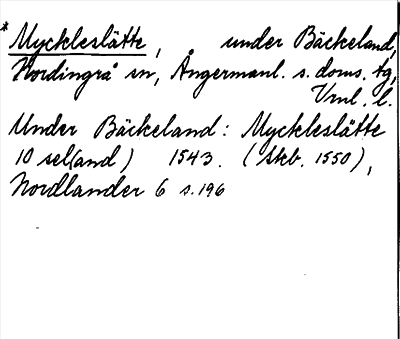 * Myckleslätte, under Bäckeland,
Nordingrå sn, Ångermanl. s. doms. tg,
Vnl. l.
Under Bäckeland: Myckleslätte
10 sel(and) 1543. (Skb. 1550),
Nordlander 6 s. 196